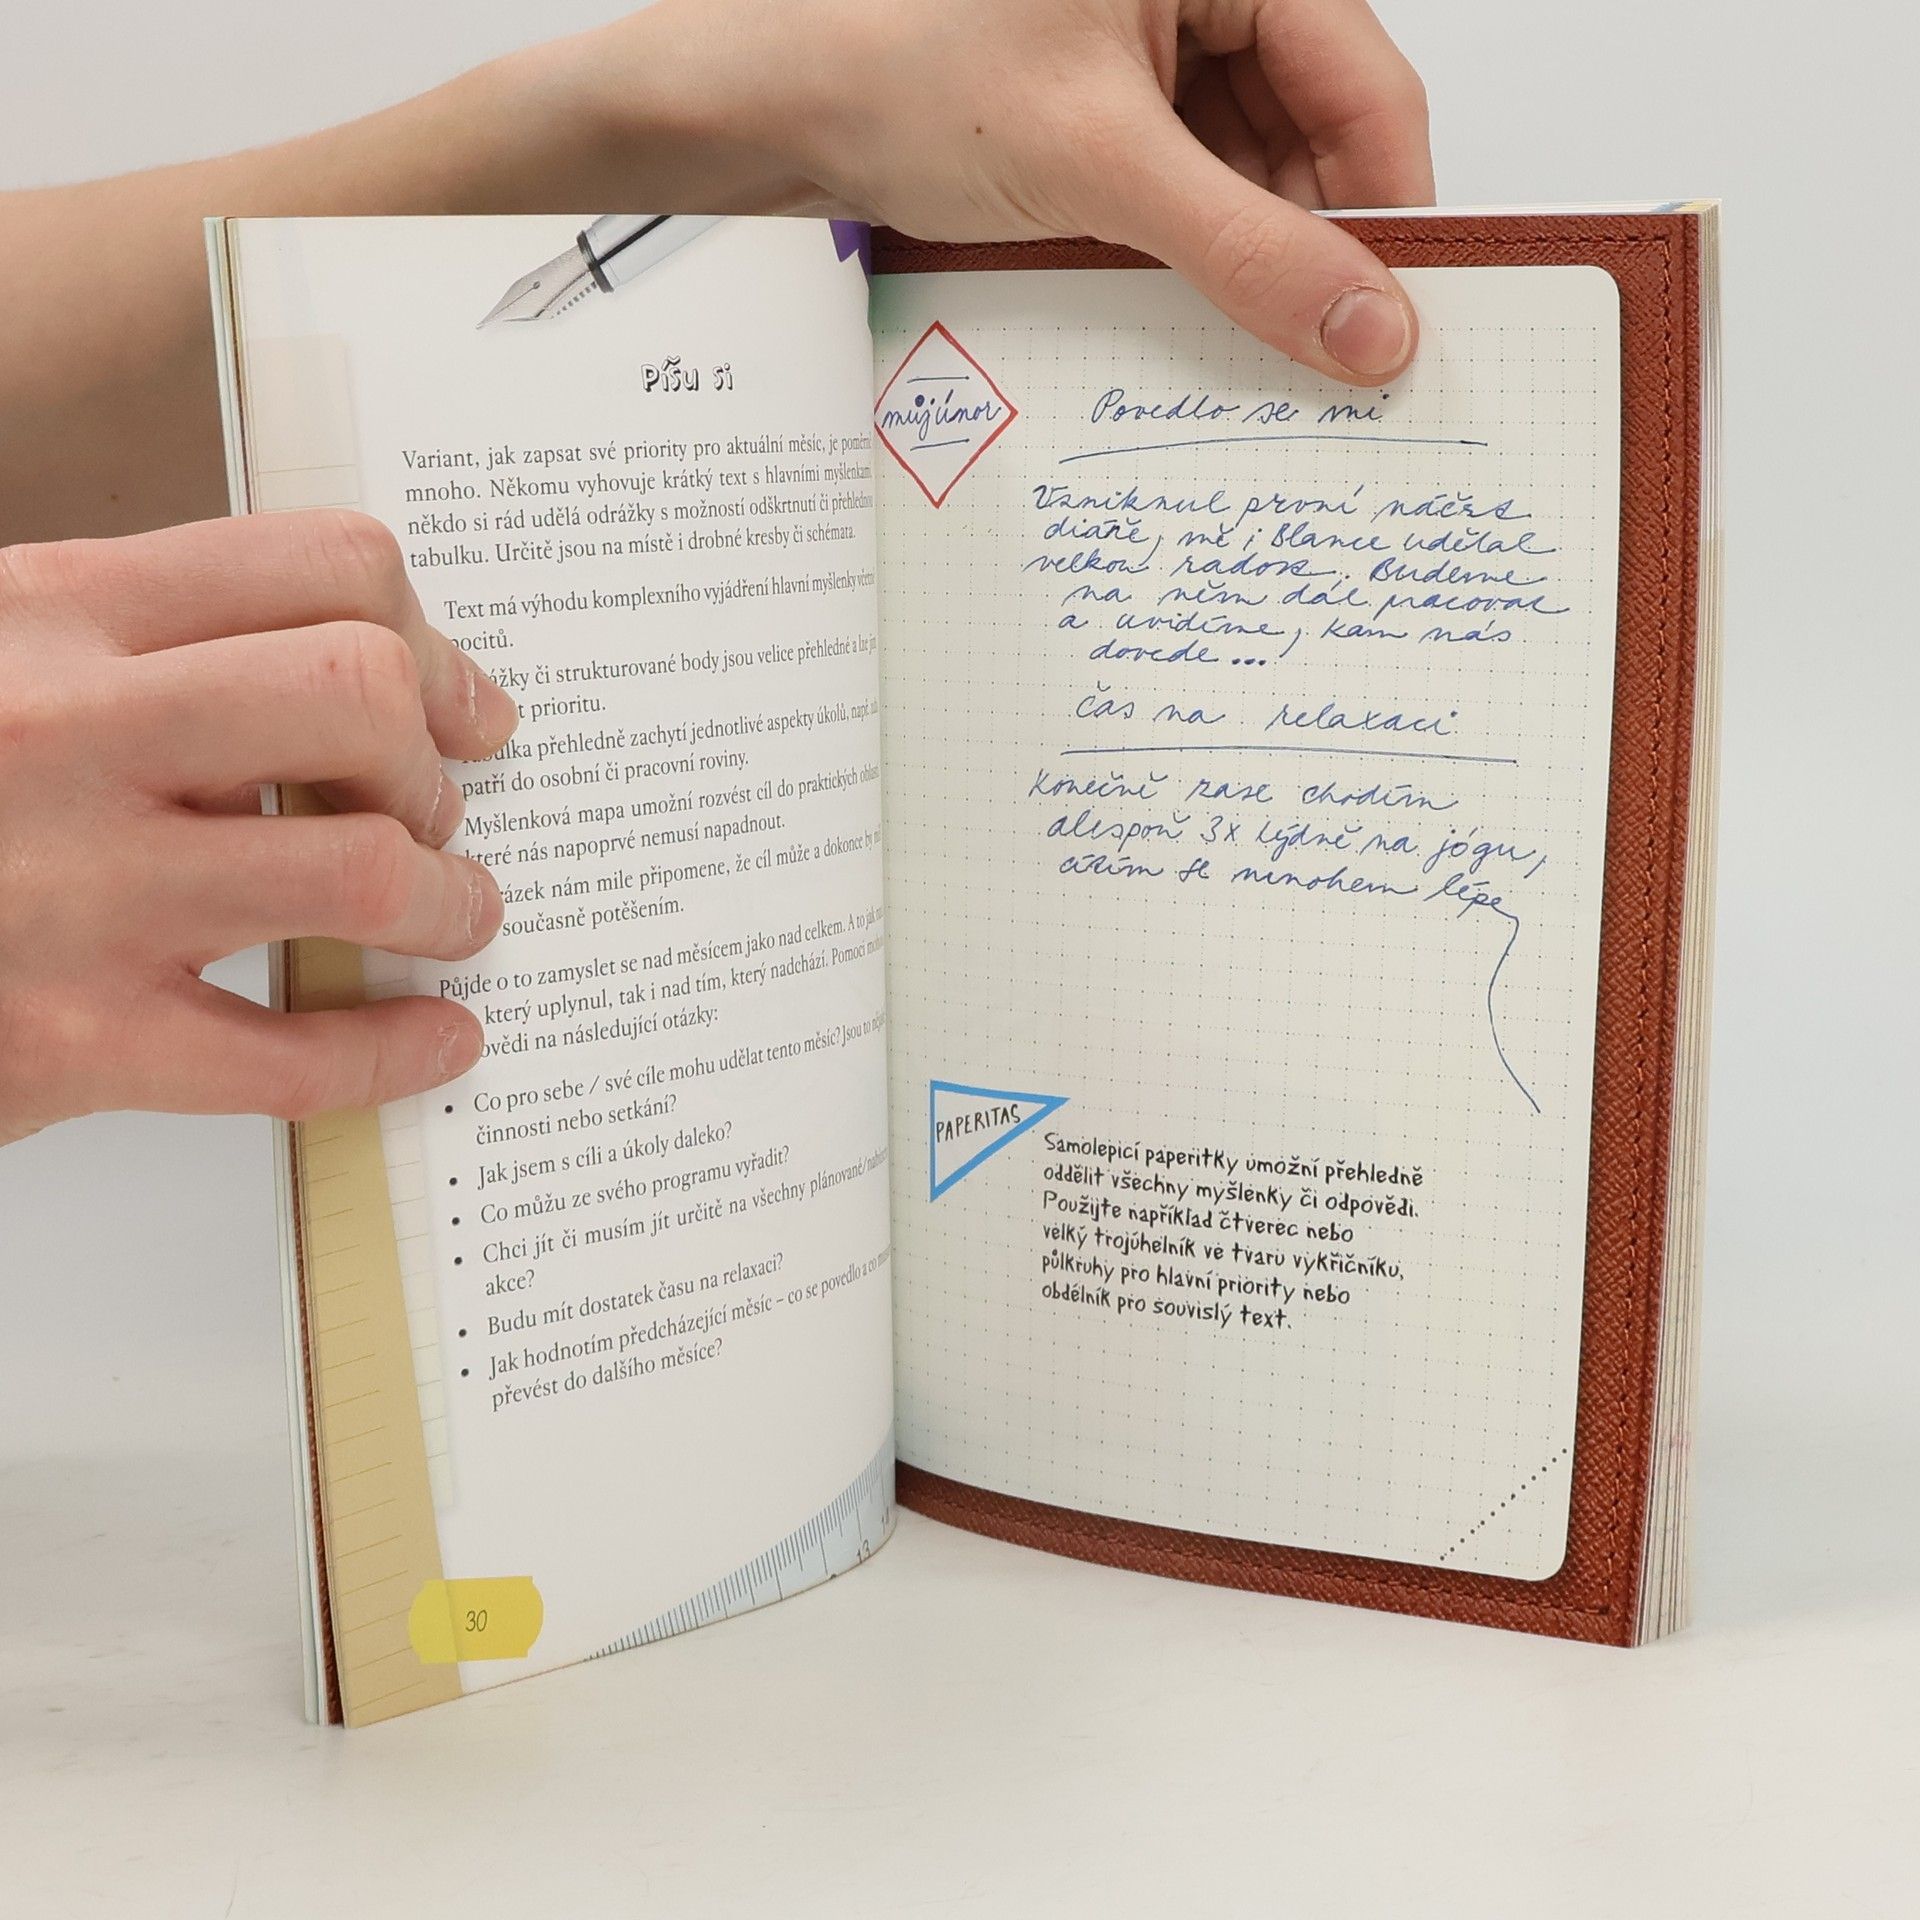 Píšu si
Variant, jak zapsat své priority pro aktuální měsíc, je poměrně
mnoho. Někomu vyhovuje krátký text s hlavními myšlenkami,
někdo si rád udělá odrážky s možností odškrtnutí či přehlednou
tabulku. Určitě jsou na místě i drobné kresby či schémata.
Text má výhodu komplexního vyjádření hlavní myšlenky včetně
pocitů.
ážky či strukturované body jsou velice přehledné a lze jim
t prioritu.
ulka přehledně zachytí jednotlivé aspekty úkolů, např. zda
patří do osobní či pracovní roviny.
Myšlenková mapa umožní rozvést cíl do praktických oblastí,
které nás napoprvé nemusí napadnout.
rázek nám mile připomene, že cíl může a dokonce by měl
současně potěšením.
Půjde o to zamyslet se nad měsícem jako nad celkem. A to jak nad
který uplynul, tak i nad tím, který nadchází. Pomoci mohou
ovědi na následující otázky:
• Co pro sebe / své cíle mohu udělat tento měsíc? Jsou to
činnosti nebo setkání?
• Jak jsem s cíli a úkoly daleko?
• Co můžu ze svého programu vyřadit?
• Chci jít či musím jít určitě na všechny plánované/
akce?
• Budu mít dostatek času na relaxaci?
• Jak hodnotím předcházející měsíc – co se povedlo a co
převést do dalšího měsíce?
13
30
můj únor
Povedlo se mi
Vzniknul první náčrt
diáře, mě i Blance udělal
velkou radost. Budeme
na něm dál pracovat
a uvidíme, kam nás
dovede...
čas na relaxaci
Konečně zase chodím
alespoň 3x týdně na jógu,
cítím se mnohem lépe
PAPERITAS
Samolepicí paperitky umožní přehledně
oddělit všechny myšlenky či odpovědi.
Použijte například čtverec nebo
velký trojúhelník ve tvaru vykřičníku,
půlkruhy pro hlavní priority nebo
obdélník pro souvislý text.